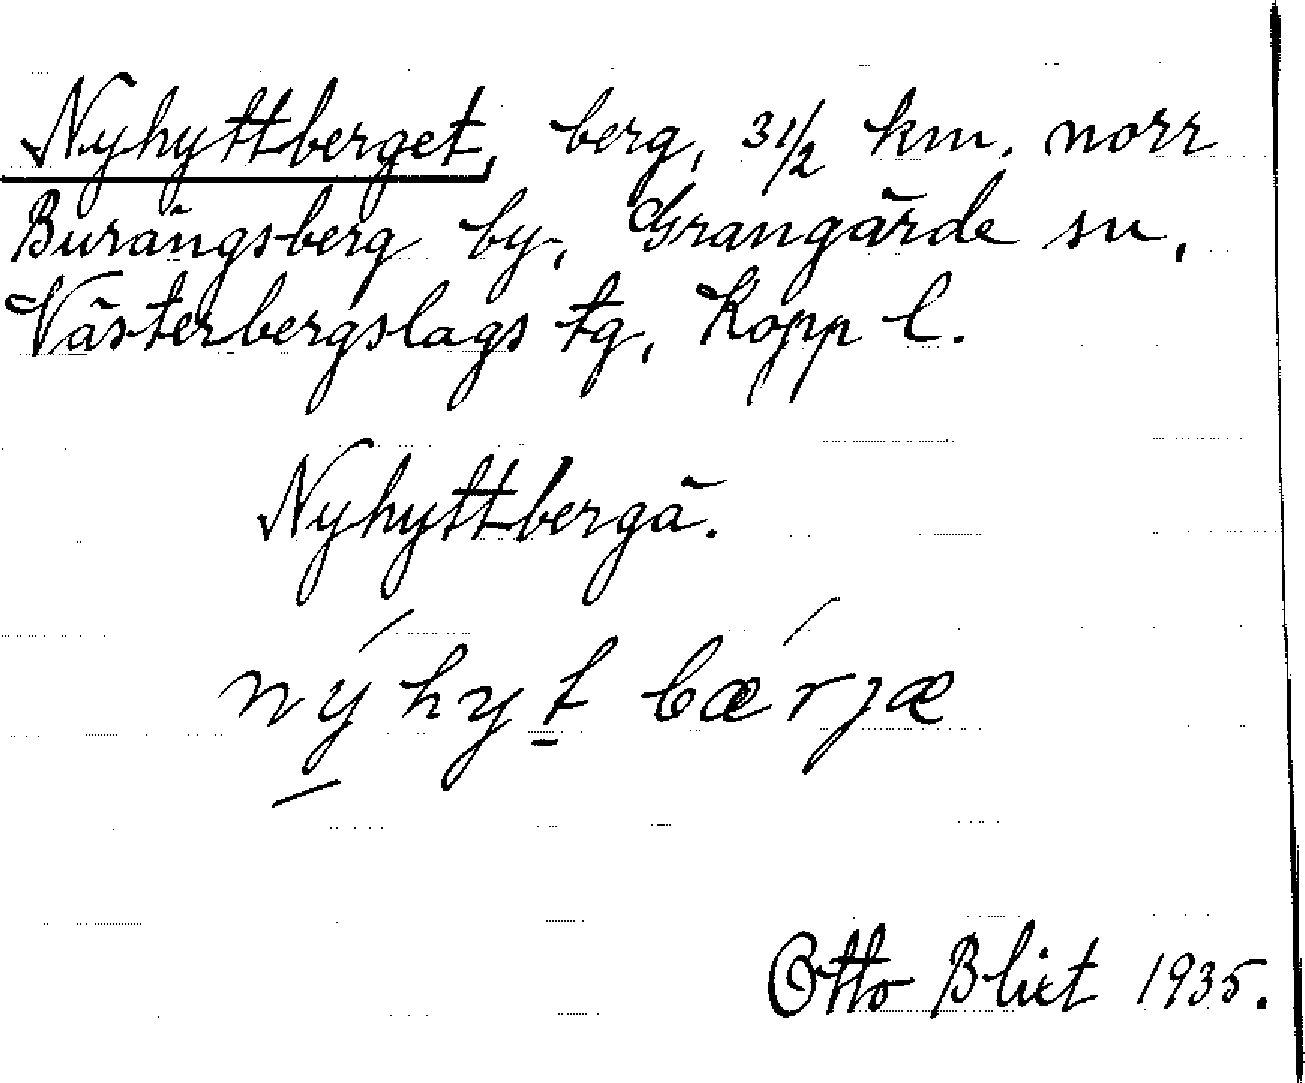 Nyhyttberget, berg, 3 1/2 km. norr
Burängsberg by, Grangärde sn,
Västerbergslags tg, Kopp l.
Nyhyttbergä.
nýhyt bærjæ
Otto Blixt 1935.